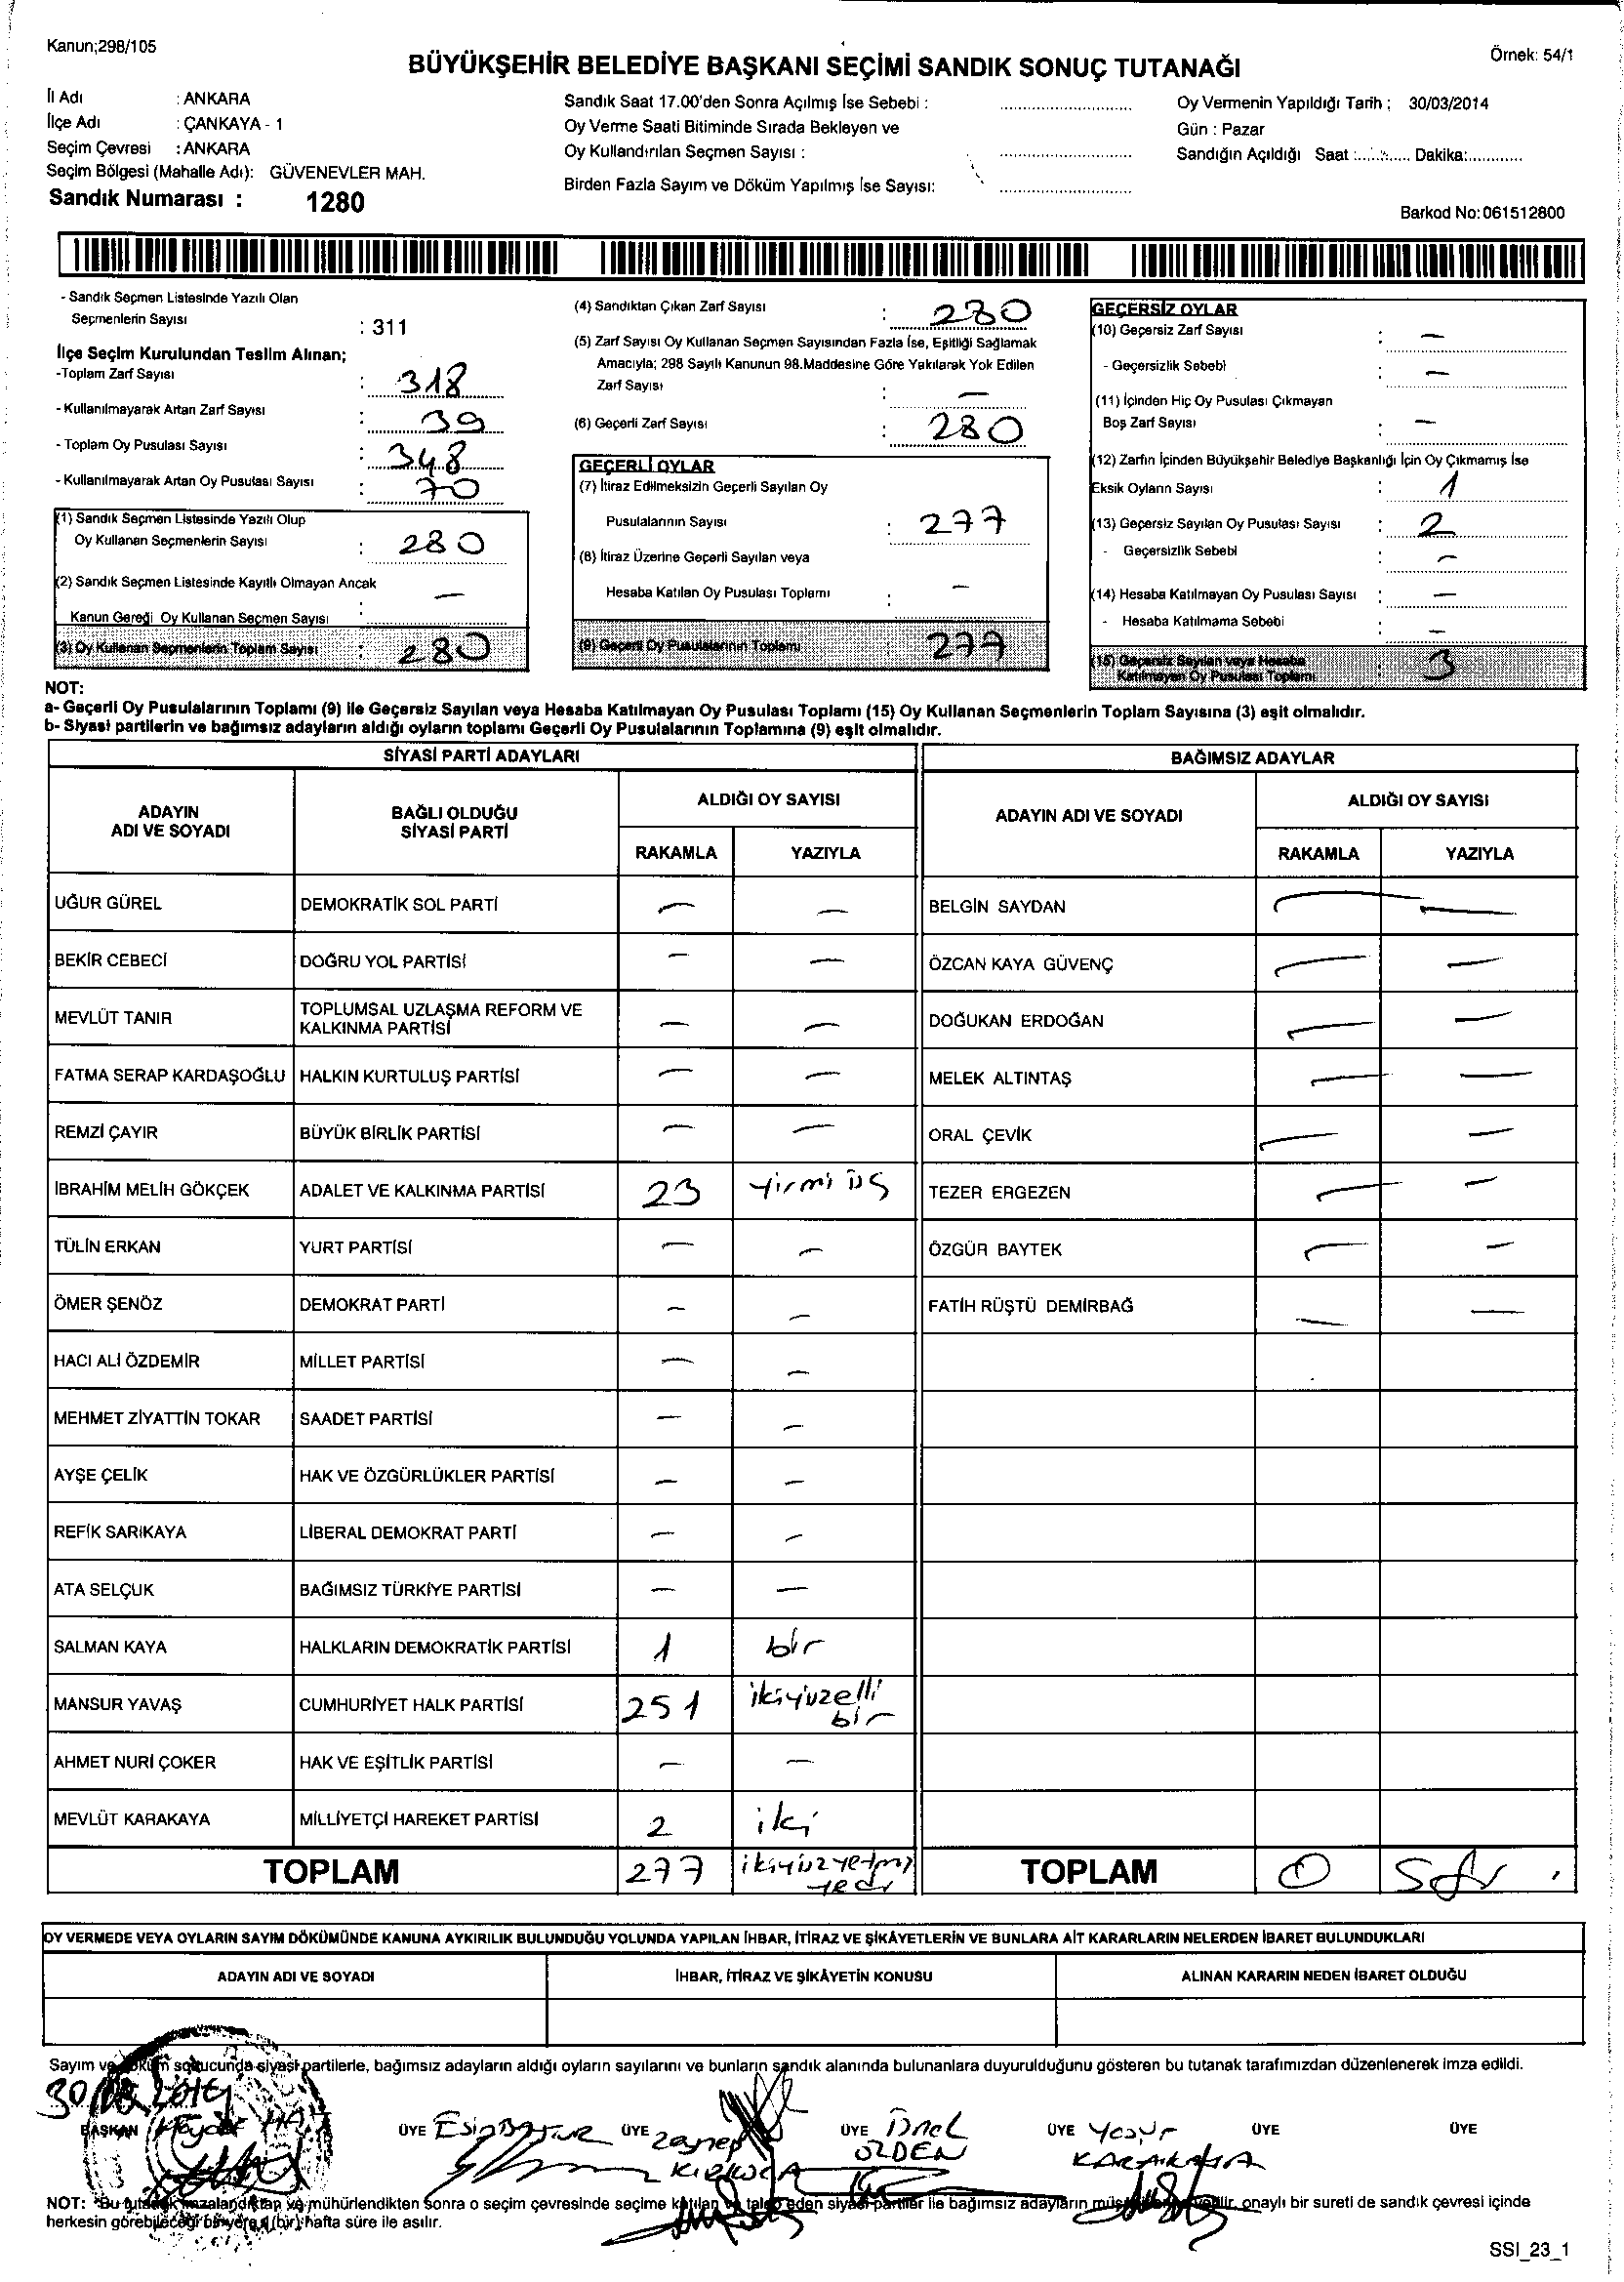 Kanun;298/105
BÜYÜKŞEHİR BELEDİYE BAŞKANI SEÇİMİ SANDIK SONUÇ TUTANAĞI
Örnek: 54/1
İl Adı : ANKARA
İlçe Adı : ÇANKAYA - 1
Seçim Çevresi : ANKARA
Seçim Bölgesi (Mahalle Adı): GÜVENEVLER MAH.
Sandık Numarası : 1280
Sandık Saat 17.00'den Sonra Açılmış İse Sebebi :
Oy Verme Saati Bitiminde Sırada Bekleyen ve
Oy Kullandırılan Seçmen Sayısı :
Birden Fazla Sayım ve Döküm Yapılmış İse Sayısı:
Oy Vermenin Yapıldığı Tarih : 30/03/2014
Gün : Pazar
Sandığın Açıldığı Saat :.......... Dakika:............
Barkod No:061512800
- Sandık Seçmen Listesinde Yazılı Olan
Seçmenlerin Sayısı : 311
İlçe Seçim Kurulundan Teslim Alınan;
-Toplam Zarf Sayısı : 318
- Kullanılmayarak Artan Zarf Sayısı : 39
- Toplam Oy Pusulası Sayısı : 348
- Kullanılmayarak Artan Oy Pusulası Sayısı : 70
(1) Sandık Seçmen Listesinde Yazılı Olup
Oy Kullanan Seçmenlerin Sayısı : 280
(2) Sandık Seçmen Listesinde Kayıtlı Olmayan Ancak
Kanun Gereği Oy Kullanan Seçmen Sayısı : —
(3) Oy Kullanan Seçmenlerin Toplam Sayısı : 280
(4) Sandıktan Çıkan Zarf Sayısı : 280
(5) Zarf Sayısı Oy Kullanan Seçmen Sayısından Fazla İse, Eşitliği Sağlamak
Amacıyla; 298 Sayılı Kanunun 98.Maddesine Göre Yakılarak Yok Edilen
Zarf Sayısı : —
(6) Geçerli Zarf Sayısı : 280
GEÇERLİ OYLAR
(7) İtiraz Edilmeksizin Geçerli Sayılan Oy
Pusulalarının Sayısı : 277
(8) İtiraz Üzerine Geçerli Sayılan veya
Hesaba Katılan Oy Pusulası Toplamı : —
(9) Geçerli Oy Pusulalarının Toplamı : 277
GEÇERSİZ OYLAR
(10) Geçersiz Zarf Sayısı : —
- Geçersizlik Sebebi : —
(11) İçinden Hiç Oy Pusulası Çıkmayan
Boş Zarf Sayısı : —
(12) Zarfın İçinden Büyükşehir Belediye Başkanlığı İçin Oy Çıkmamış İse
Eksik Oyların Sayısı : 1
(13) Geçersiz Sayılan Oy Pusulası Sayısı : 2
- Geçersizlik Sebebi : —
(14) Hesaba Katılmayan Oy Pusulası Sayısı : —
- Hesaba Katılmama Sebebi : —
(15) Geçersiz Sayılan veya Hesaba
Katılmayan Oy Pusulası Toplamı : 3
NOT:
a- Geçerli Oy Pusulalarının Toplamı (9) ile Geçersiz Sayılan veya Hesaba Katılmayan Oy Pusulası Toplamı (15) Oy Kullanan Seçmenlerin Toplam Sayısına (3) eşit olmalıdır.
b- Siyasi partilerin ve bağımsız adayların aldığı oyların toplamı Geçerli Oy Pusulalarının Toplamına (9) eşit olmalıdır.
SİYASİ PARTİ ADAYLARI
ADAYIN ADI VE SOYADI
BAĞLI OLDUĞU SİYASİ PARTİ
ALDIĞI OY SAYISI
RAKAMLA YAZIYLA
UĞUR GÜREL DEMOKRATİK SOL PARTİ — —
BEKİR CEBECİ DOĞRU YOL PARTİSİ — —
MEVLÜT TANIR TOPLUMSAL UZLAŞMA REFORM VE KALKINMA PARTİSİ — —
FATMA SERAP KARDAŞOĞLU HALKIN KURTULUŞ PARTİSİ — —
REMZİ ÇAYIR BÜYÜK BİRLİK PARTİSİ — —
İBRAHİM MELİH GÖKÇEK ADALET VE KALKINMA PARTİSİ 23 yirmi üç
TÜLİN ERKAN YURT PARTİSİ — —
ÖMER ŞENÖZ DEMOKRAT PARTİ — —
HACI ALİ ÖZDEMİR MİLLET PARTİSİ — —
MEHMET ZİYATTİN TOKAR SAADET PARTİSİ — —
AYŞE ÇELİK HAK VE ÖZGÜRLÜKLER PARTİSİ — —
REFİK SARIKAYA LİBERAL DEMOKRAT PARTİ — —
ATA SELÇUK BAĞIMSIZ TÜRKİYE PARTİSİ — —
SALMAN KAYA HALKLARIN DEMOKRATİK PARTİSİ 1 bir
MANSUR YAVAŞ CUMHURİYET HALK PARTİSİ 251 ikiyüzelli bir
AHMET NURİ ÇOKER HAK VE EŞİTLİK PARTİSİ — —
MEVLÜT KARAKAYA MİLLİYETÇİ HAREKET PARTİSİ 2 iki
TOPLAM 277 ikiyüzyetmiş yedi
BAĞIMSIZ ADAYLAR
ADAYIN ADI VE SOYADI
ALDIĞI OY SAYISI
RAKAMLA YAZIYLA
BELGİN SAYDAN — —
ÖZCAN KAYA GÜVENÇ — —
DOĞUKAN ERDOĞAN — —
MELEK ALTINTAŞ — —
ORAL ÇEVİK — —
TEZER ERGEZEN — —
ÖZGÜR BAYTEK — —
FATİH RÜŞTÜ DEMİRBAĞ — —
TOPLAM 0 Sıfır
OY VERMEDE VEYA OYLARIN SAYIM DÖKÜMÜNDE KANUNA AYKIRILIK BULUNDUĞU YOLUNDA YAPILAN İHBAR, İTİRAZ VE ŞİKÂYETLERİN VE BUNLARA AİT KARARLARIN NELERDEN İBARET BULUNDUKLARI
ADAYIN ADI VE SOYADI
İHBAR, İTİRAZ VE ŞİKÂYETİN KONUSU
ALINAN KARARIN NEDEN İBARET OLDUĞU
Sayım ve döküm sonucunda siyasi partilerle, bağımsız adayların aldığı oyların sayılarını ve bunların sandık alanında bulunanlara duyurulduğunu gösteren bu tutanak tarafımızdan düzenlenerek imza edildi.
BAŞKAN
ÜYE
ÜYE Zeynep
ÜYE ÖZDEN
ÜYE KARAKAYA
ÜYE
ÜYE
NOT: Bu tutanak imzalandıktan ve mühürlendikten sonra o seçim çevresinde seçime katılan ve talep eden siyasi partiler ile bağımsız adayların verilir, onaylı bir sureti de sandık çevresi içinde
herkesin görebileceği bir yere (bir) hafta süre ile asılır.
SSI_23_1